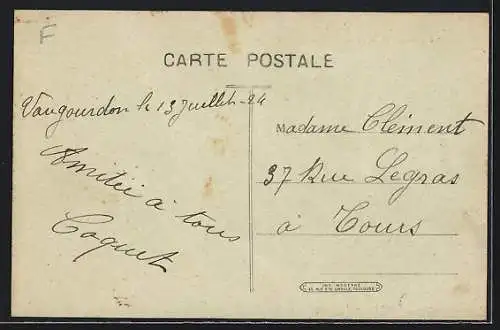 F
CARTE POSTALE
Vaugourdon le 13 Juillet - 24
Amitié à tous
Coquet
Madame Clément
37 Rue Legras
à Tours
IMP. MODERNE